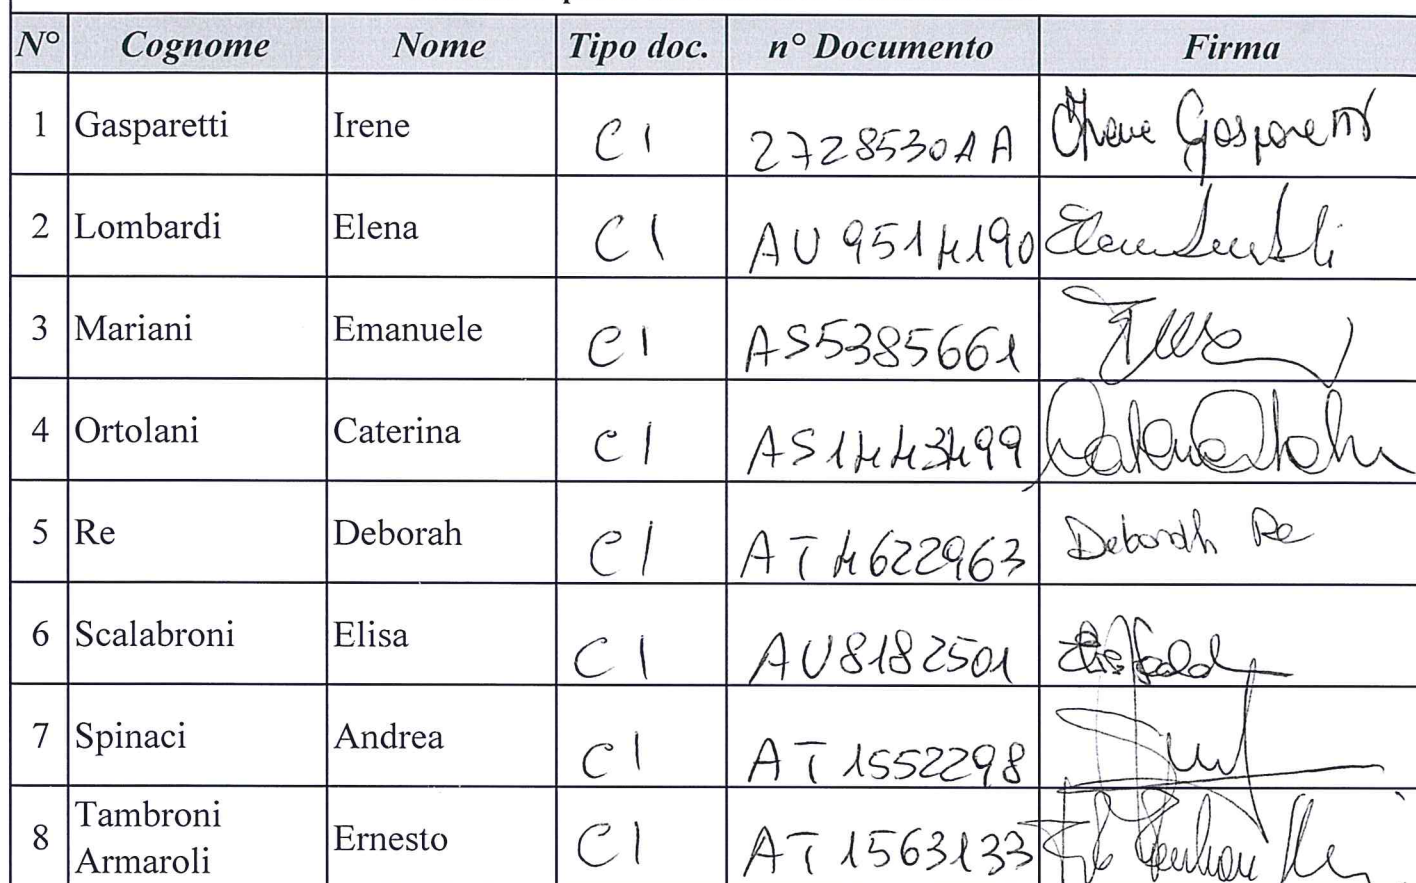 N° Cognome Nome Tipo doc. n° Documento Firma
1 Gasparetti Irene CI 2728530AA Irene Gasparetti
2 Lombardi Elena CI AU 9514190 Elena Lombardi
3 Mariani Emanuele CI AS5385661
4 Ortolani Caterina CI AS1443499 Caterina Ortolani
5 Re Deborah CI AT4622963 Deborah Re
6 Scalabroni Elisa CI AU8182501
7 Spinaci Andrea CI AT1552298
8 Tambroni
Armaroli Ernesto CI AT1563133